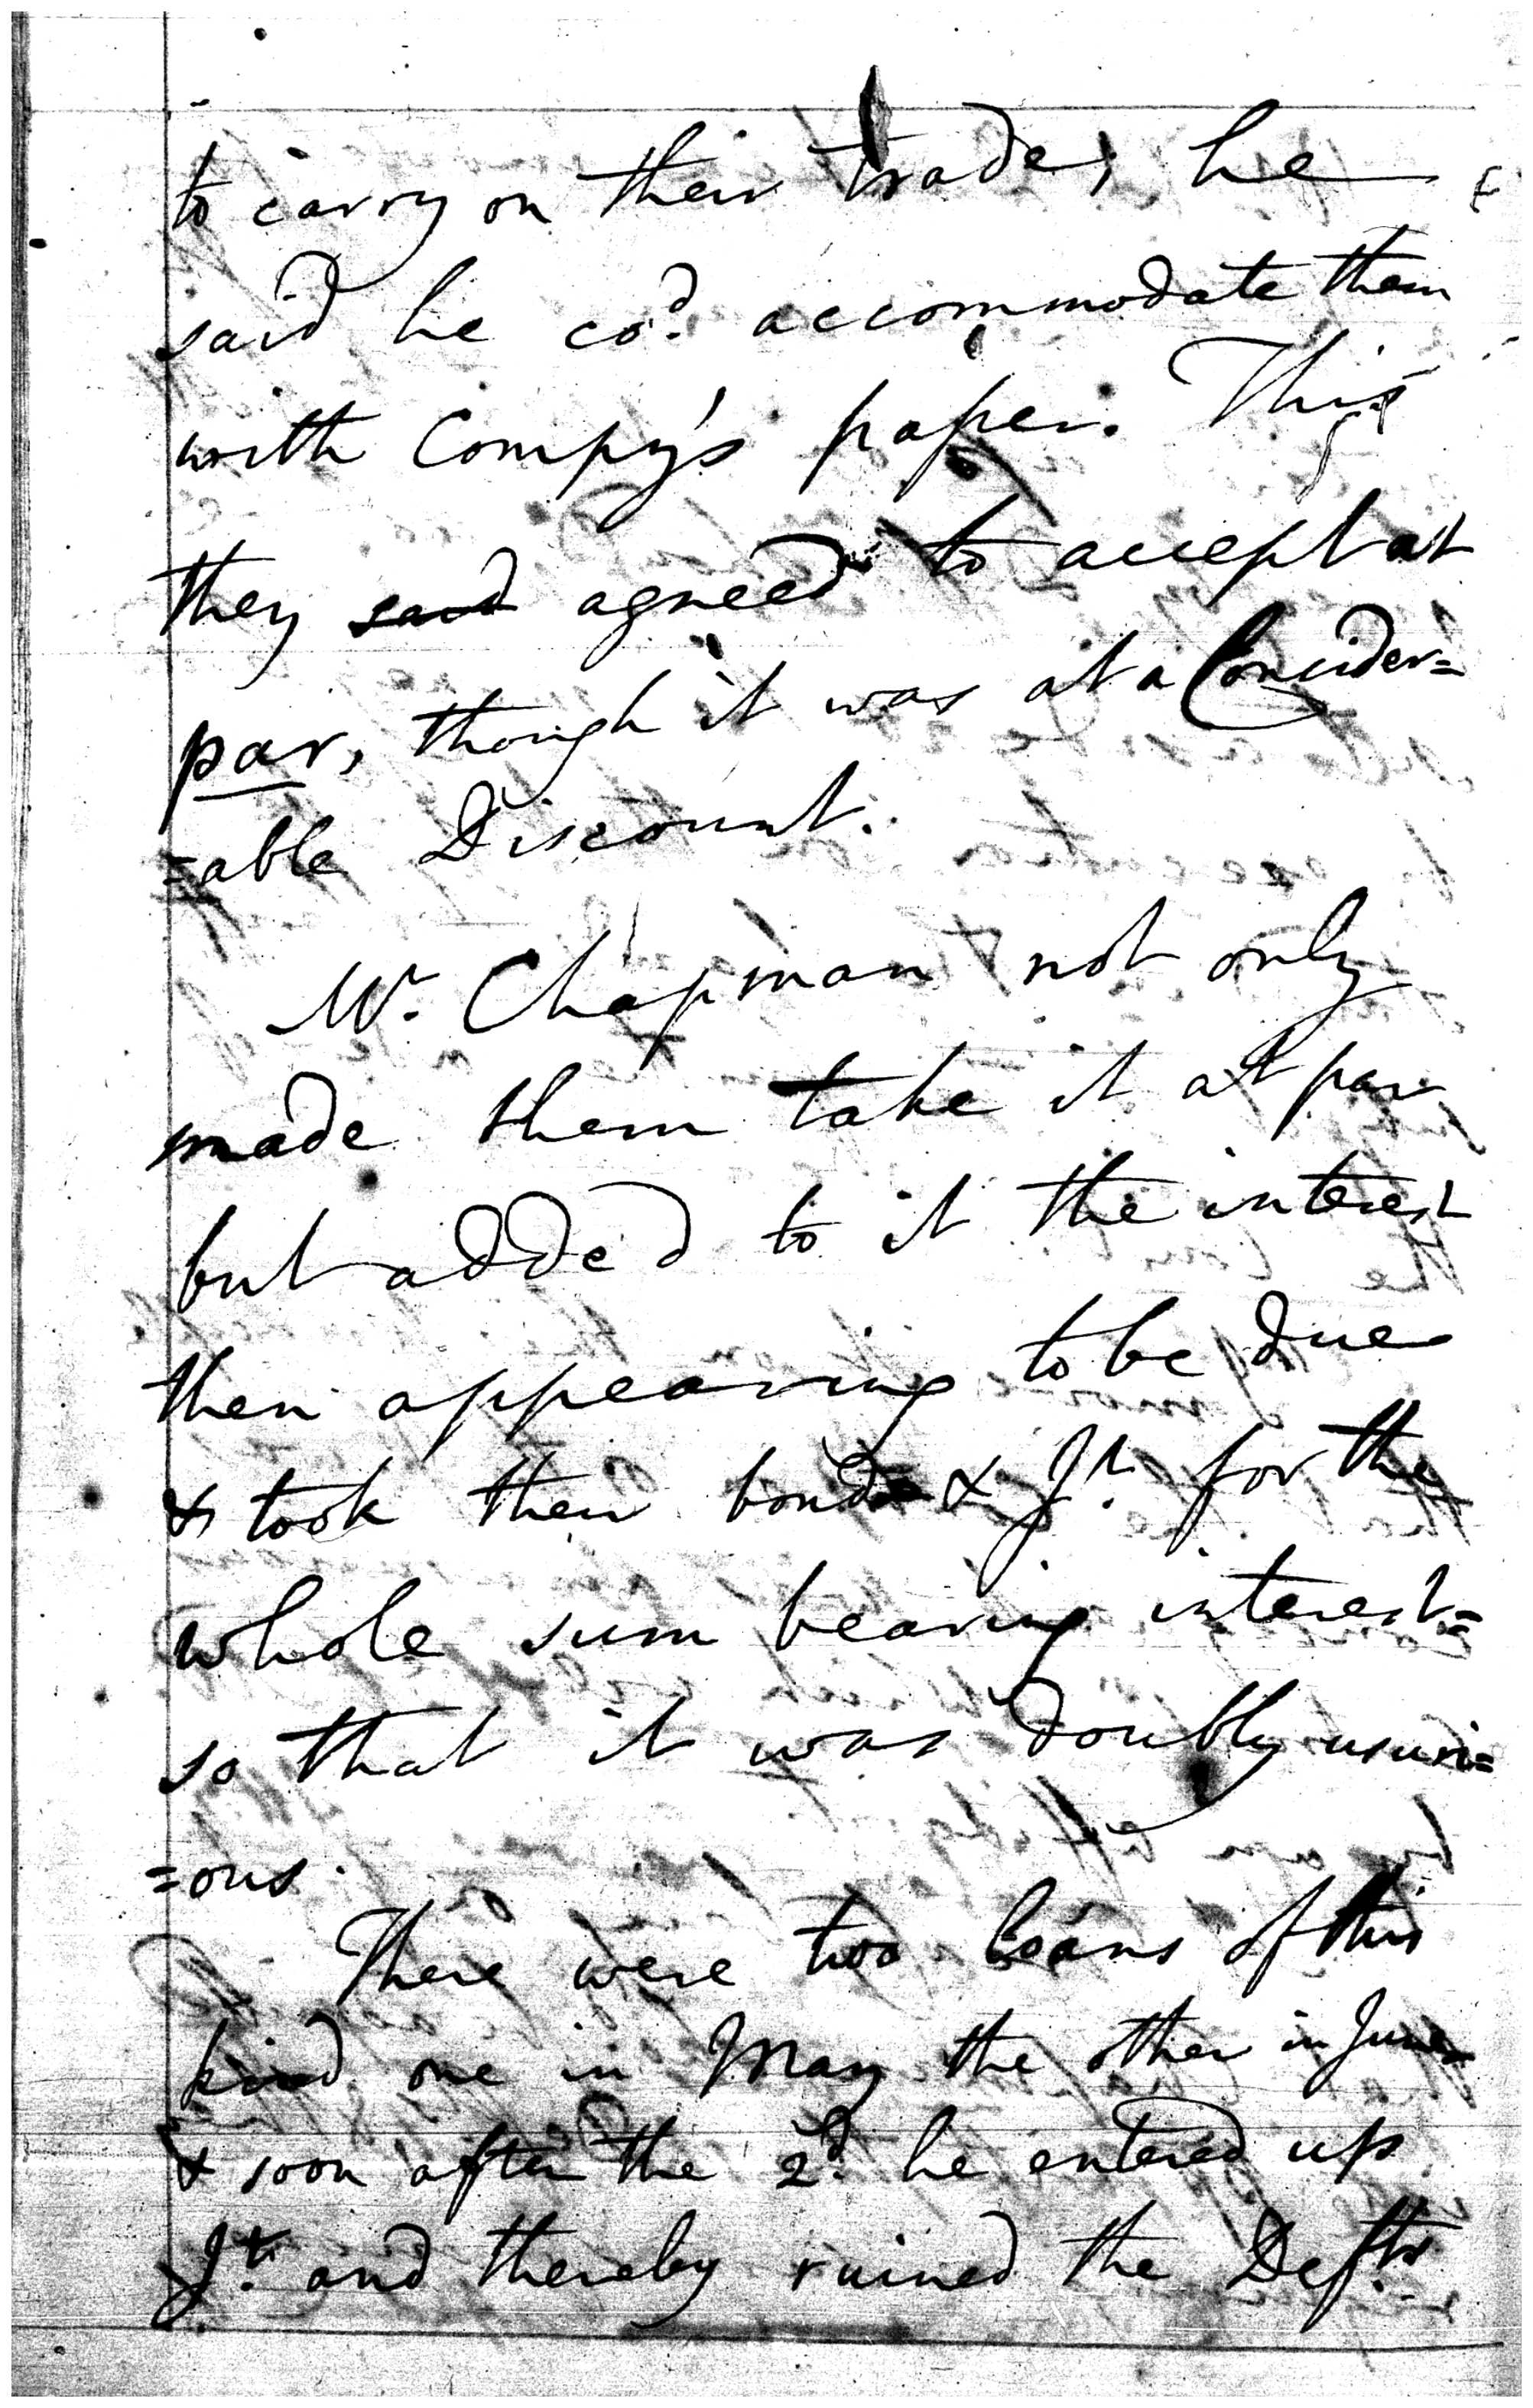 to carry on their trade, he
said he cod. accommodate them
with Compy's paper. This
they said agreed to accept at
par, though it was at a Consider=
=able Discount.
Mr. Chapman not only
made them take it at par
but added to it the interest
then appearing to be due
& took their bonds & Jt. for the
whole sum bearing interest=
so that it was doubly usuri=
=ous.
There were two loans of this
kind one in May the other in June
& soon after the 2d. he entered up
Jt. and thereby ruined the Defts.